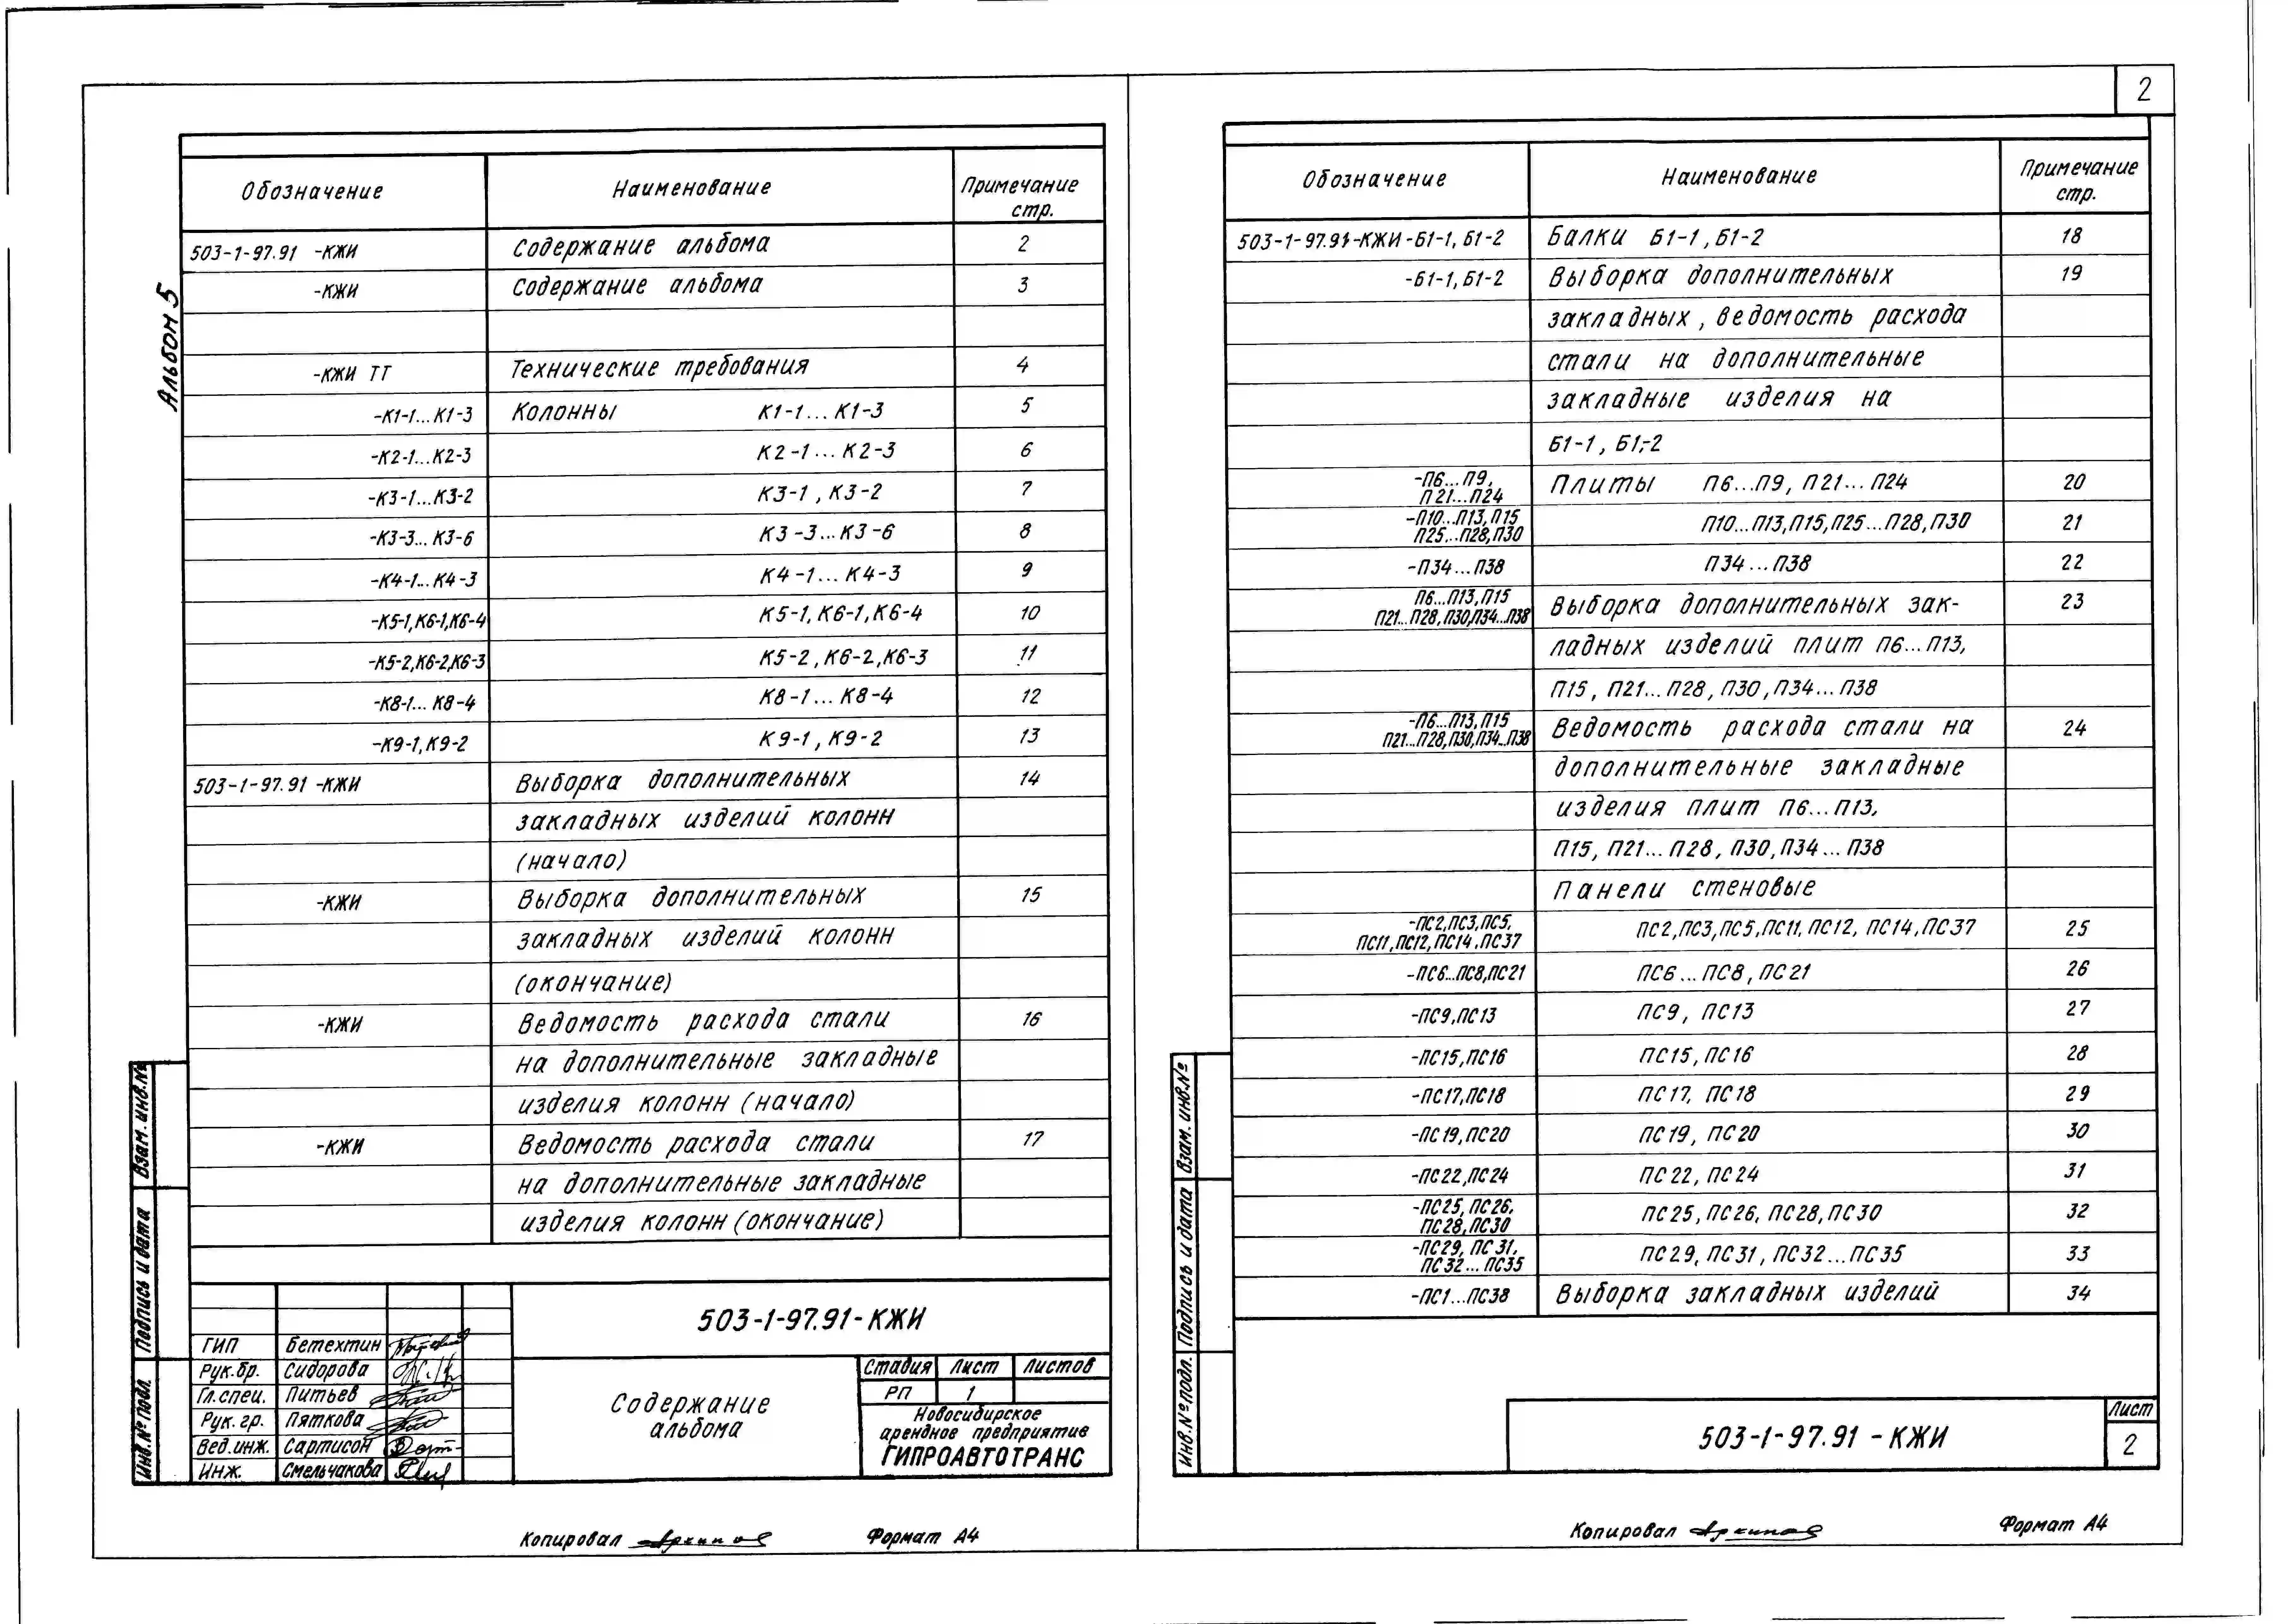 2
Альбом 5
Обозначение Наименование Примечание стр.
503-1-97.91 -КЖИ Содержание альбома 2
-КЖИ Содержание альбома 3
-КЖИ ТТ Технические требования 4
-К1-1...К1-3 Колонны К1-1...К1-3 5
-К2-1...К2-3 К2-1...К2-3 6
-К3-1...К3-2 К3-1, К3-2 7
-К3-3...К3-6 К3-3...К3-6 8
-К4-1...К4-3 К4-1...К4-3 9
-К5-1,К6-1,К6-4 К5-1, К6-1, К6-4 10
-К5-2,К6-2,К6-3 К5-2, К6-2, К6-3 11
-К8-1...К8-4 К8-1...К8-4 12
-К9-1,К9-2 К9-1, К9-2 13
503-1-97.91 -КЖИ Выборка дополнительных 14
закладных изделий колонн
(начало)
-КЖИ Выборка дополнительных 15
закладных изделий колонн
(окончание)
-КЖИ Ведомость расхода стали 16
на дополнительные закладные
изделия колонн (начало)
-КЖИ Ведомость расхода стали 17
на дополнительные закладные
изделия колонн (окончание)
Взам. инв.№
Подпись и дата
Инв.№ подл.
503-1-97.91-КЖИ
ГИП Бетехтин
Рук.бр. Сидорова
Гл.спец. Питьев
Рук.гр. Пяткова
Вед.инж. Сартисон
Инж. Смельчакова
Содержание
альбома
Стадия Лист Листов
РП 1
Новосибирское
арендное предприятие
ГИПРОАВТОТРАНС
Копировал Формат А4
Обозначение Наименование Примечание стр.
503-1-97.91-КЖИ-Б1-1, Б1-2 Балки Б1-1, Б1-2 18
-Б1-1, Б1-2 Выборка дополнительных 19
закладных, ведомость расхода
стали на дополнительные
закладные изделия на
Б1-1, Б1-2
-П6...П9,
П21...П24 Плиты П6...П9, П21...П24 20
-П10...П13, П15
П25...П28,П30 П10...П13,П15,П25...П28,П30 21
-П34...П38 П34...П38 22
П6...П13,П15
П21...П28,П30,П34...П38 Выборка дополнительных зак- 23
ладных изделий плит П6...П13,
П15, П21...П28, П30, П34...П38
-П6...П13,П15
П21...П28,П30,П34...П38 Ведомость расхода стали на 24
дополнительные закладные
изделия плит П6...П13,
П15, П21...П28, П30, П34...П38
Панели стеновые
-ПС2,ПС3,ПС5,
ПС11,ПС12,ПС14,ПС37 ПС2,ПС3,ПС5,ПС11,ПС12, ПС14,ПС37 25
-ПС6...ПС8,ПС21 ПС6...ПС8, ПС21 26
-ПС9,ПС13 ПС9, ПС13 27
-ПС15,ПС16 ПС15, ПС16 28
-ПС17,ПС18 ПС17, ПС18 29
-ПС19,ПС20 ПС19, ПС20 30
-ПС22,ПС24 ПС22, ПС24 31
-ПС25, ПС26,
ПС28,ПС30 ПС25, ПС26, ПС28, ПС30 32
-ПС29, ПС31,
ПС32...ПС35 ПС29, ПС31, ПС32...ПС35 33
-ПС1...ПС38 Выборка закладных изделий 34
Взам. инв.№
Подпись и дата
Инв.№ подл.
503-1-97.91 -КЖИ
Лист
2
Копировал Формат А4